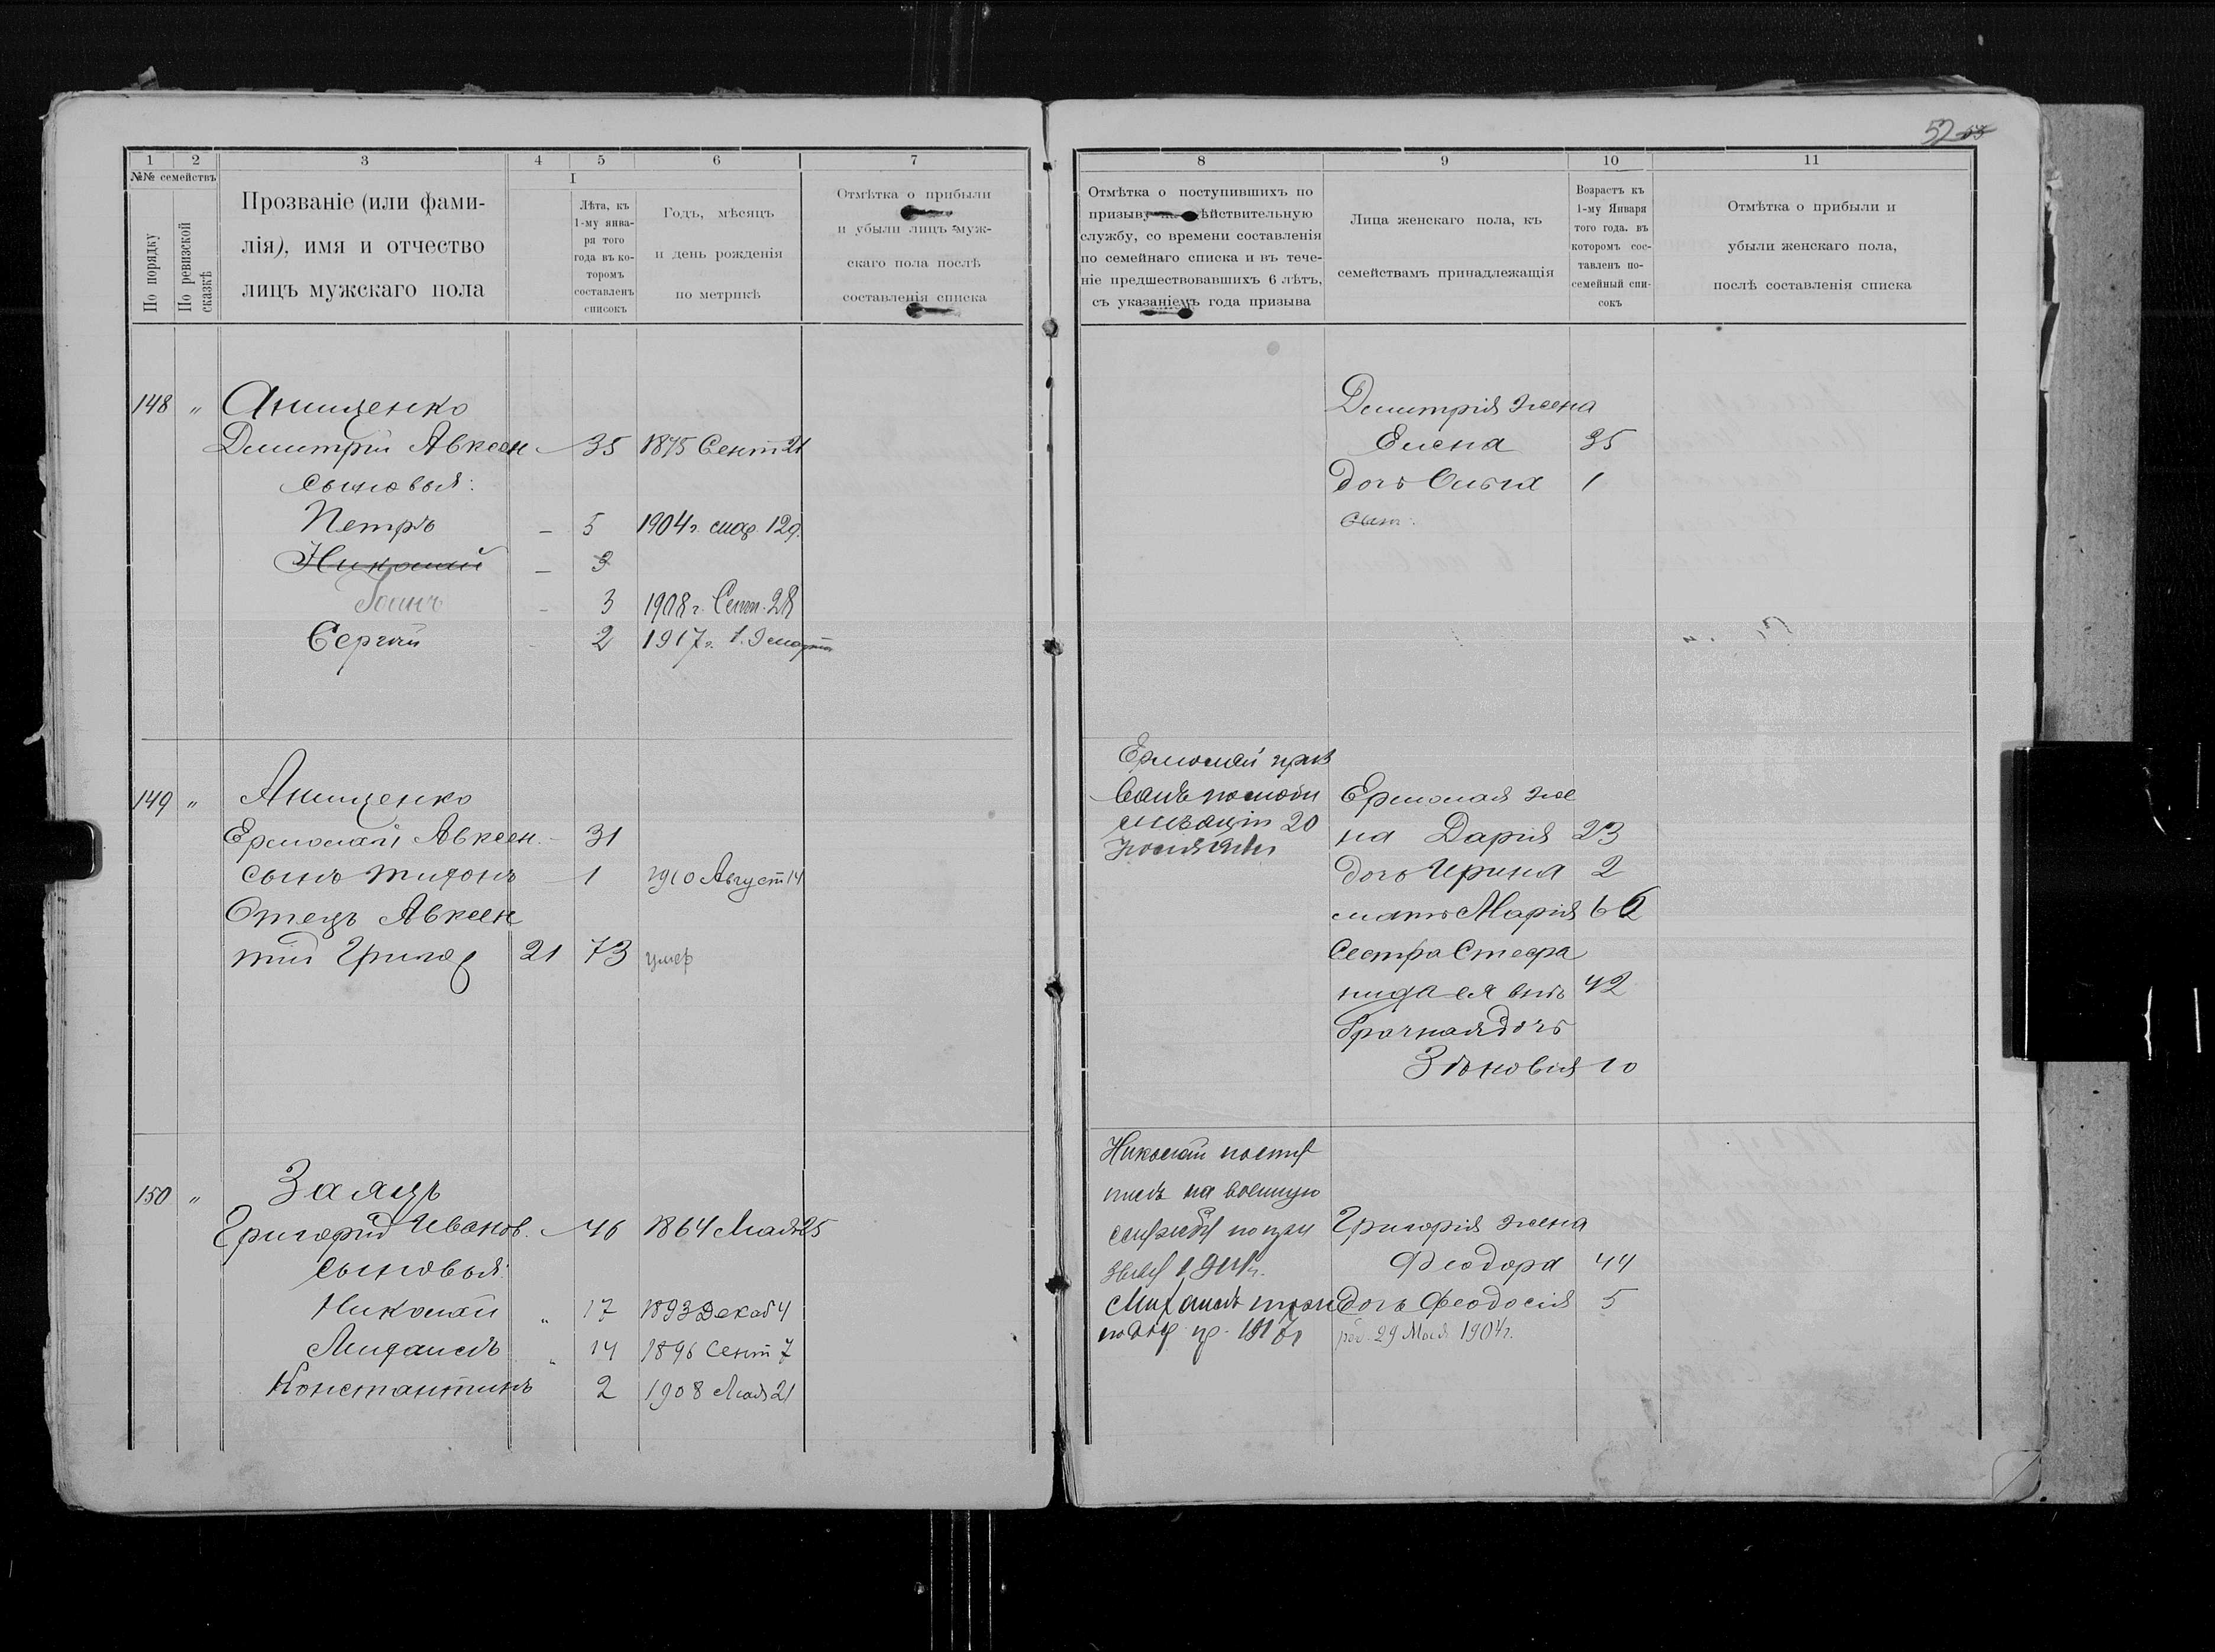 52
1
2
3
4
5
6
7
№№ семействъ
По порядку
По ревизской сказкѣ
Прозваніе (или фами-
лія), имя и отчество
лицъ мужскаго пола
I
Лѣта, къ
1-му янва-
ря того
года въ ко-
торомъ
составленъ
списокъ
Годъ, мѣсяцъ
и день рожденія
по метрикѣ
Отмѣтка о прибыли
и убыли лицъ муж-
скаго пола послѣ
составленія списка
148 " Анищенко
Димитрій Авксен 35 1875 Сент 21
сыновья:
Петръ — 5 1904 г. 12 д.
Николай — 3
Іоанъ - 3 1908 г. Сент. 28
Сергѣй 2 1917 г.
149 " Анищенко
Ермолай Авксен. - 31
сынъ Тихонъ — 1 1910 Август 14
Отецъ Авксен
тій Григор 21 73 умер
150 " Заяцъ
Григорій Иванов. 46 1864 Мая 25
сыновья:
Николай " 17 1893 Декаб 4
Михаилъ " 14 1896 Сент 7
Константинъ 2 1908 Мая 21
8
9
10
11
Отмѣтка о поступившихъ по
призыву на дѣйствительную
службу, со времени составленія
по семейнаго списка и въ тече-
ніе предшествовавшихъ 6 лѣтъ,
съ указаніемъ года призыва
Лица женскаго пола, къ
семействамъ принадлежащія
Возрастъ къ
1-му Января
того года. въ
которомъ сос-
тавленъ по-
семейный спи-
сокъ
Отмѣтка о прибыли и
убыли женскаго пола,
послѣ составленія списка
Димитрія жена
Елена 35
дочь Ольга 1
Ермолай приз
ванъ по моби
лизаціи 20
Ермолая же
на Дарія 23
дочь Ирина 2
мать Марія 62
Сестра Стефа
нида ея внѣ 42
брачная дочь
Зѣновія 10
Николай посту
пилъ на военную
службу по при
зыву
Михаилъ
Григорія жена
Феодора 44
дочь Феодосія 5
род. 29 Мая 1904 г.